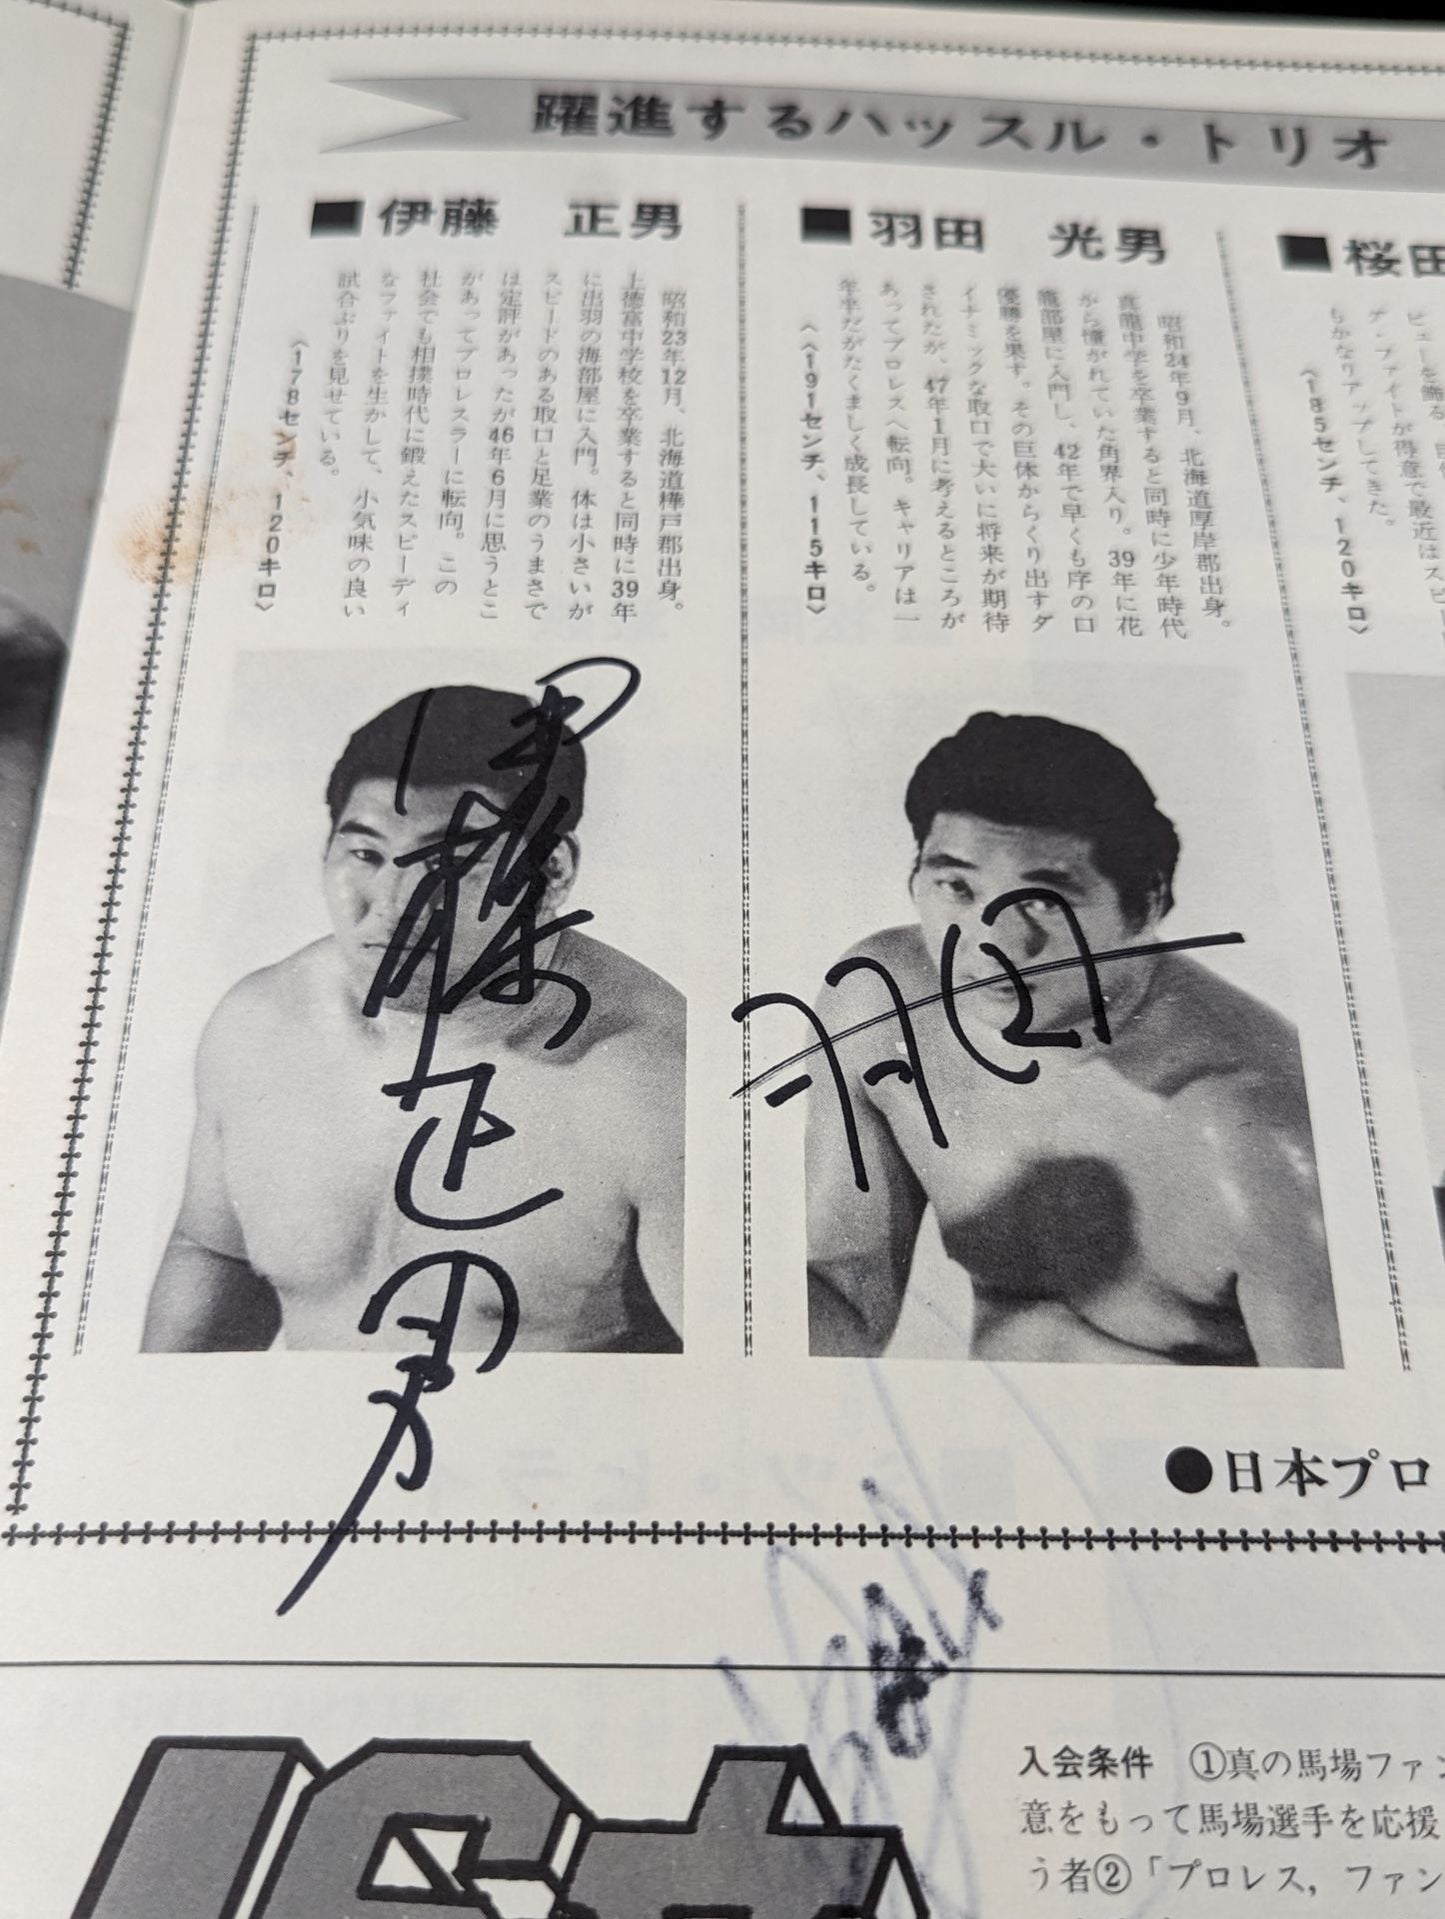 躍進するハッスル・トリオ
■伊藤 正男
昭和23年12月、北海道樺戸郡出身。
上徳富中学校を卒業すると同時に39年
に出羽の海部屋に入門。体は小さいが
スピードのある取口と足業のうまさで
は定評があったが46年6月に思うとこ
があってプロレスラーに転向。この
社会でも相撲時代に鍛えたスピーディ
なファイトを生かして、小気味の良い
試合ぶりを見せている。
〈178センチ、120キロ〉
■羽田 光男
昭和24年9月、北海道厚岸郡出身。
真龍中学を卒業すると同時に少年時代
から憧がれていた角界入り。39年に花
籠部屋に入門し、42年で早くも序の口
優勝を果す。その巨体からくり出すダ
イナミックな取口で大いに将来が期待
されたが、47年1月に考えるところが
あってプロレスへ転向。キャリアは一
年半だがたくましく成長している。
〈191センチ、115キロ〉
■桜田
ビューを飾る。
デ・ファイトが得意で最近はスピ
ちかなりアップしてきた。
〈185センチ、120キロ〉
伊藤正男
羽田
●日本プロ
入会条件 ①真の馬場ファン
意をもって馬場選手を応援
う者②「プロレス，ファン